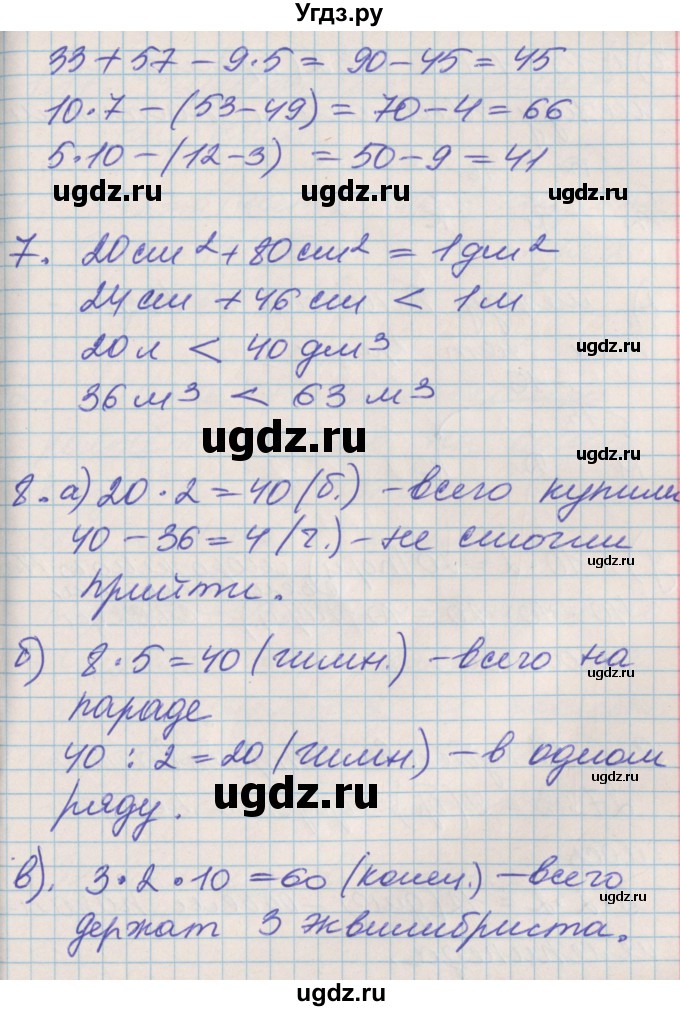 Угдз.ру
33 + 57 - 9·5 = 90 - 45 = 45
10·7 - (53 - 49) = 70 - 4 = 66
5·10 - (12 - 3) = 50 - 9 = 41
ugdz.ru ugdz.ru ugdz.ru
7. 20 см² + 80 см² = 1 дм²
24 см + 46 см < 1 м
20 л < 40 дм³
ugdz.ru
36 м³ < 63 м³
ugdz.ru
ugdz.ru
8. а) 20 · 2 = 40 (б.) - всего купили
40 - 36 = 4 (г.) - не смогли
ugdz.ru ugdz.ru
прийти.
б) 8 · 5 = 40 (гимн.) - всего на
ugdz.ru
параде
40 : 2 = 20 (гимн.) - в одном
ugdz.ru
ряду.
ugdz.ru
в). 3 · 2 · 10 = 60 (колец.) - всего
ugdz.ru
держат 3 эквилибриста.
ugdz.ru